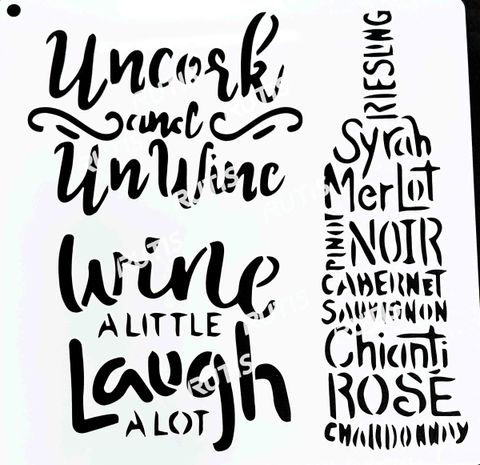 Uncork
and
UnWine
Wine
A LITTLE
Laugh
A LOT
RIESLING
Syrah
MerLot
PINOT NOIR
CABERNET
SAUVIGNON
Chianti
ROSÉ
CHARDONNAY
RUTIS
RUTIS
RUTIS
RUTIS
RUTIS
RUTIS
RUTIS